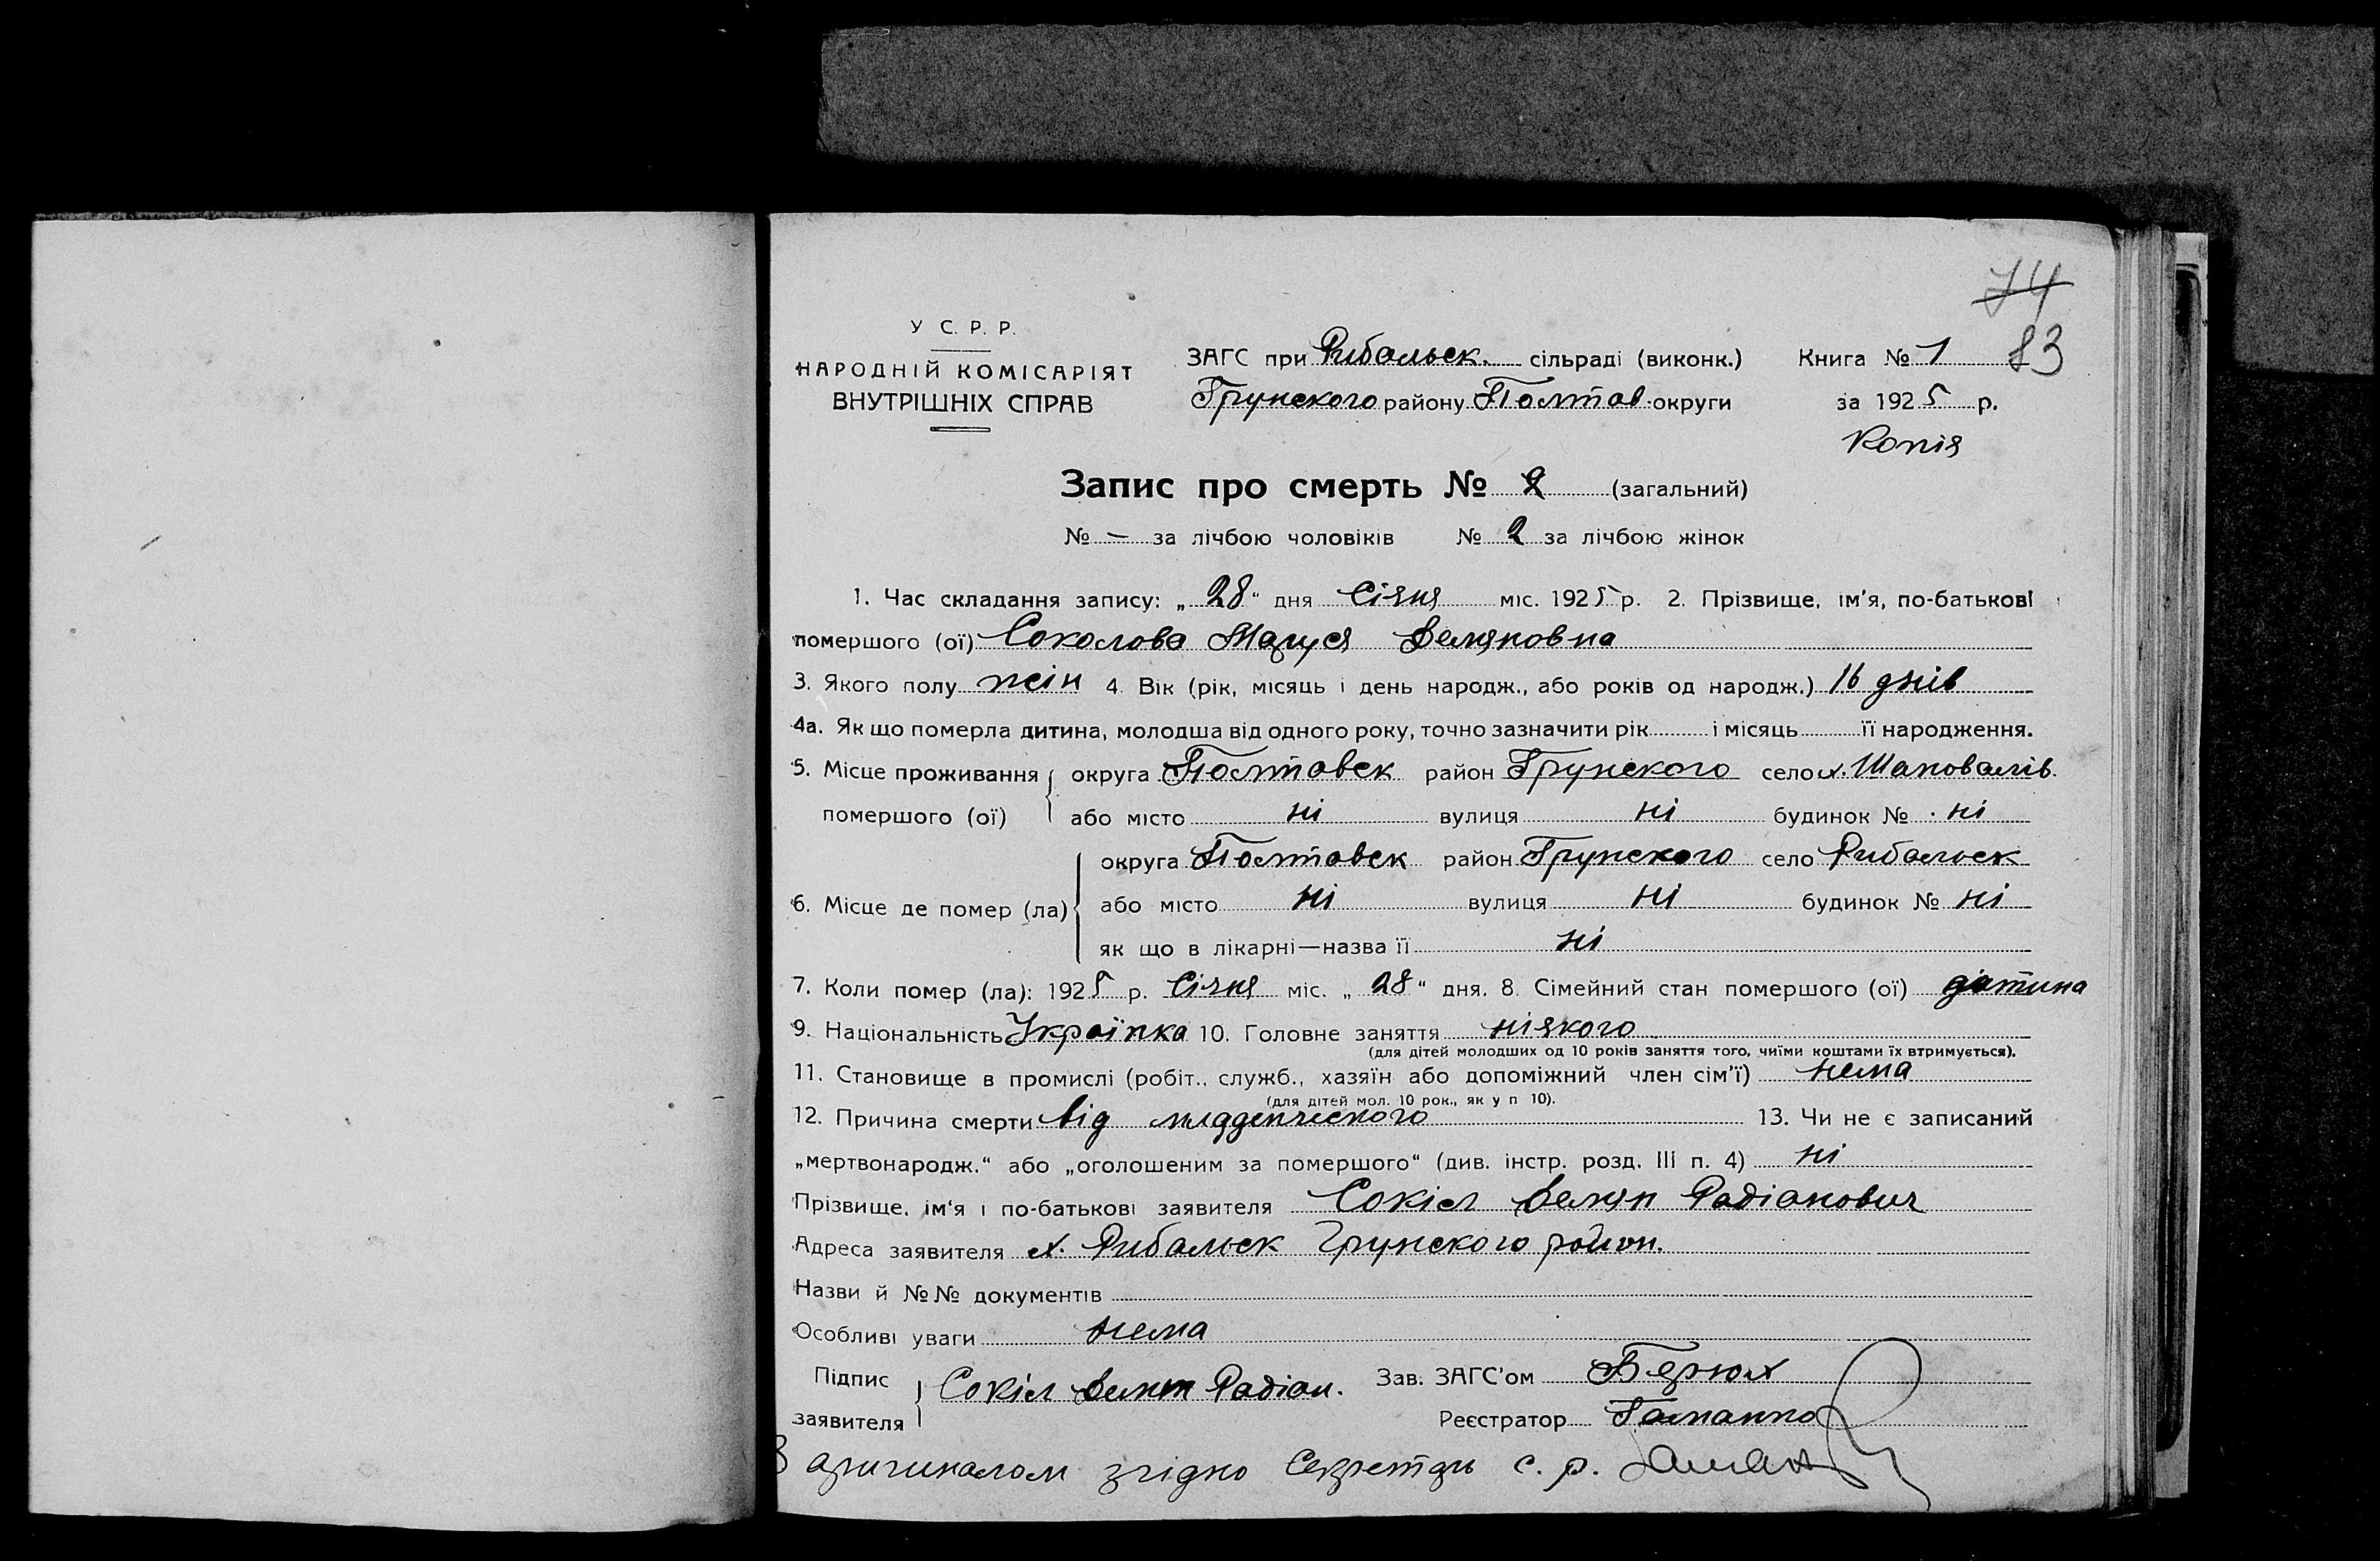 74
У С. Р. Р.
НАРОДНІЙ КОМІСАРІЯТ
ВНУТРІШНІХ СПРАВ
ЗАГС при Рибальск. сільраді (виконк.) Книга № 1 83
Грунского району Полтав. округи за 1925 р.
Копія
Запис про смерть № 2 (загальний)
№ — за лічбою чоловіків № 2 за лічбою жінок
1. Час складання запису: „28“ дня Січня міс. 1925 р. 2. Прізвище, ім'я, по-батькові
помершого (ої) Соколова Маруся Демяновна
3. Якого полу жін 4. Вік (рік, місяць і день народж., або років од народж.) 16 днів
4а. Як що померла дитина, молодша від одного року, точно зазначити рік і місяць її народження.
5. Місце проживання округа Полтавск район Грунского село х. Шаповалів
помершого (ої) або місто ні вулиця ні будинок № ні
округа Полтавск район Грунского село Рибальск
6. Місце де помер (ла) або місто ні вулиця ні будинок № ні
як що в лікарні—назва її ні
7. Коли помер (ла): 1925 р. Січня міс. „28“ дня. 8. Сімейний стан помершого (ої) дитина
9. Національність Українка 10. Головне заняття ніякого
(для дітей молодших од 10 років заняття того, чиїми коштами їх втримується).
11. Становище в промислі (робіт., служб., хазяїн або допоміжний член сім'ї) нема
(для дітей мол. 10 рок., як у п 10).
12. Причина смерти від младенческого 13. Чи не є записаний
„мертвонародж.“ або „оголошеним за помершого“ (див. інстр. розд. III п. 4) ні
Прізвище, ім'я і по-батькові заявителя Сокіл Демян Радіанович
Адреса заявителя х. Рибальск Грунского район.
Назви й №№ документів
Особливі уваги нема
Підпис заявителя Сокіл Демян Радіан. Зав. ЗАГС'ом Бярюх
Реєстратор
З аригиналом згідно Секретарь с. р.